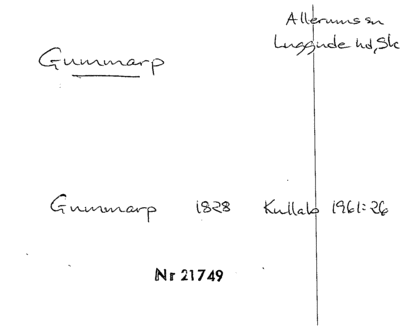 Allerums sn
Luggude hd, Sk
Gummarp
Gummarp 1828 Kullab 1961:26
Nr 21749